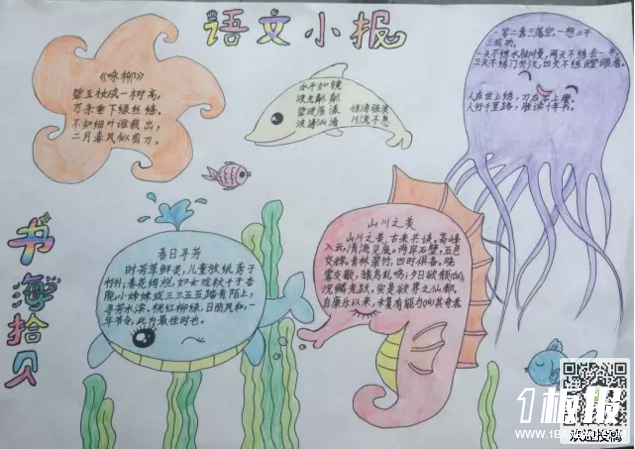 语文小报
《咏柳》
碧玉妆成一树高,
万条垂下绿丝绦。
不知细叶谁裁出,
二月春风似剪刀。
水平如镜
波光粼粼
碧波荡漾
波涛汹涌
川流不息
一等二靠三落空,一想二干
三成功。
一天不练手脚慢,两天不练丢一半,
三天不练门外汉,四天不练瞪眼看。
人在世上练,刀在石上磨。
人行千里路,胜读十年书。
书海拾贝
春日寻芳
时芳草鲜美,儿童放纸鸢于
村外;春花绚烂,
小姊妹或三三五五踏青陌上,
寻芳水滨。桃红柳绿,日丽风和,一
年节令,此为最佳时也。
山川之美
山川之美,古来共谈。高峰
入云,清流见底。两岸石壁,五色
交辉。青林翠竹,四时俱备。晓
雾交歇,猿鸟乱鸣;夕日欲颓,
沉鳞竞跃。实是欲界之仙都,
自康乐以来,未复有能与其奇者
1板报
WWW.1BANBAO.COM
欢迎投稿